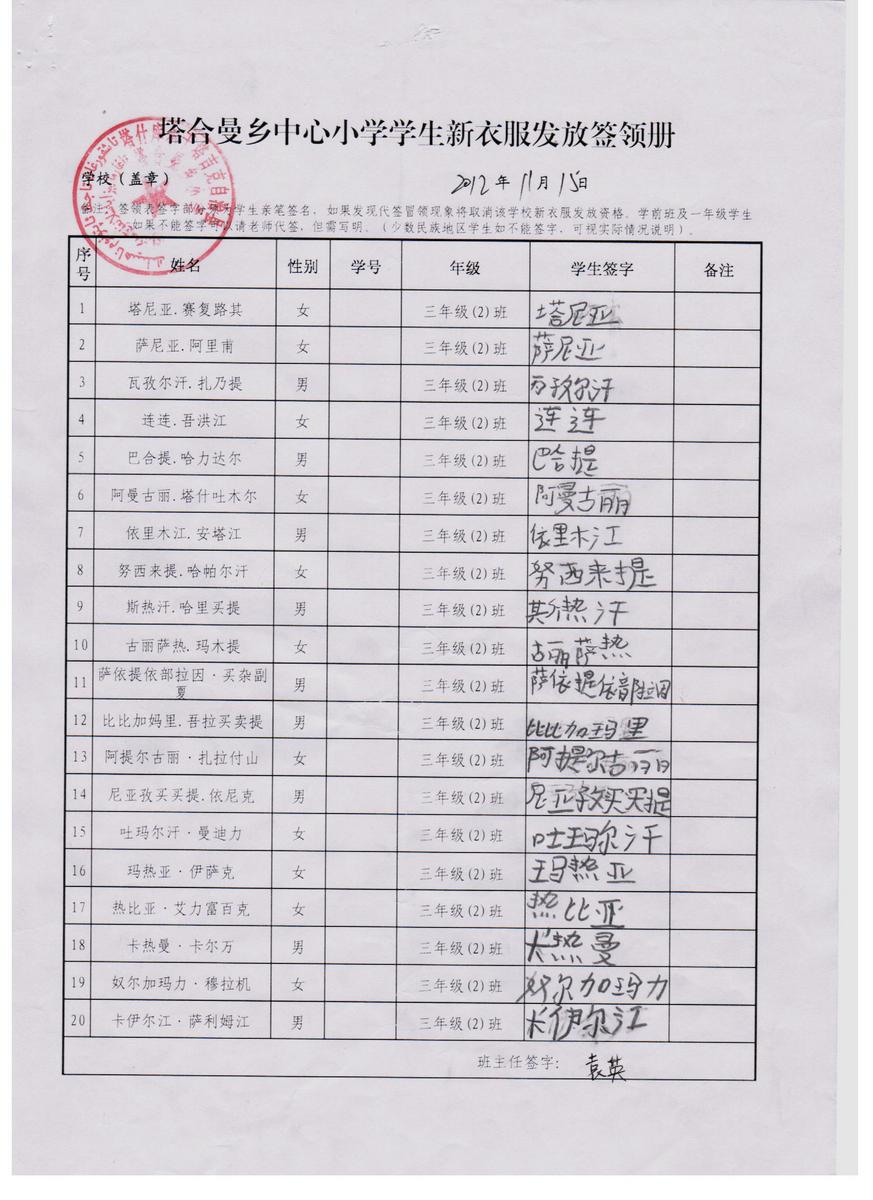 塔合曼乡中心小学学生新衣服发放签领册
学校(盖章) 2012年11月15日
签领表签字部分 为学生亲笔签名,如果发现代签冒领现象将取消该学校新衣服发放资格。学前班及一年级学生
如果不能签字 以请老师代签,但需写明。(少数民族地区学生如不能签字,可视实际情况说明)。
序号 姓名 性别 学号 年级 学生签字 备注
1 塔尼亚.赛复路其 女 三年级(2)班 塔尼亚
2 萨尼亚.阿里甫 女 三年级(2)班 萨尼亚
3 瓦孜尔汗.扎乃提 男 三年级(2)班 瓦孜尔汗
4 连连.吾洪江 女 三年级(2)班 连连
5 巴合提.哈力达尔 男 三年级(2)班 巴合提
6 阿曼古丽.塔什吐木尔 女 三年级(2)班 阿曼古丽
7 依里木江.安塔江 男 三年级(2)班 依里木江
8 努西来提.哈帕尔汗 女 三年级(2)班 努西来提
9 斯热汗.哈里买提 男 三年级(2)班 斯热汗
10 古丽萨热.玛木提 女 三年级(2)班 古丽萨热
11 萨依提依部拉因·买杂副夏 男 三年级(2)班 萨依提依部拉因
12 比比加妈里.吾拉买卖提 男 三年级(2)班 比比加玛里
13 阿提尔古丽·扎拉付山 女 三年级(2)班 阿提尔古丽
14 尼亚孜买买提.依尼克 男 三年级(2)班 尼亚孜买买提
15 吐玛尔汗·曼迪力 女 三年级(2)班 吐玛尔汗
16 玛热亚·伊萨克 女 三年级(2)班 玛热亚
17 热比亚·艾力富百克 女 三年级(2)班 热比亚
18 卡热曼·卡尔万 男 三年级(2)班 卡热曼
19 奴尔加玛力·穆拉机 女 三年级(2)班 奴尔加玛力
20 卡伊尔江·萨利姆江 男 三年级(2)班 卡伊尔江
班主任签字: 袁英